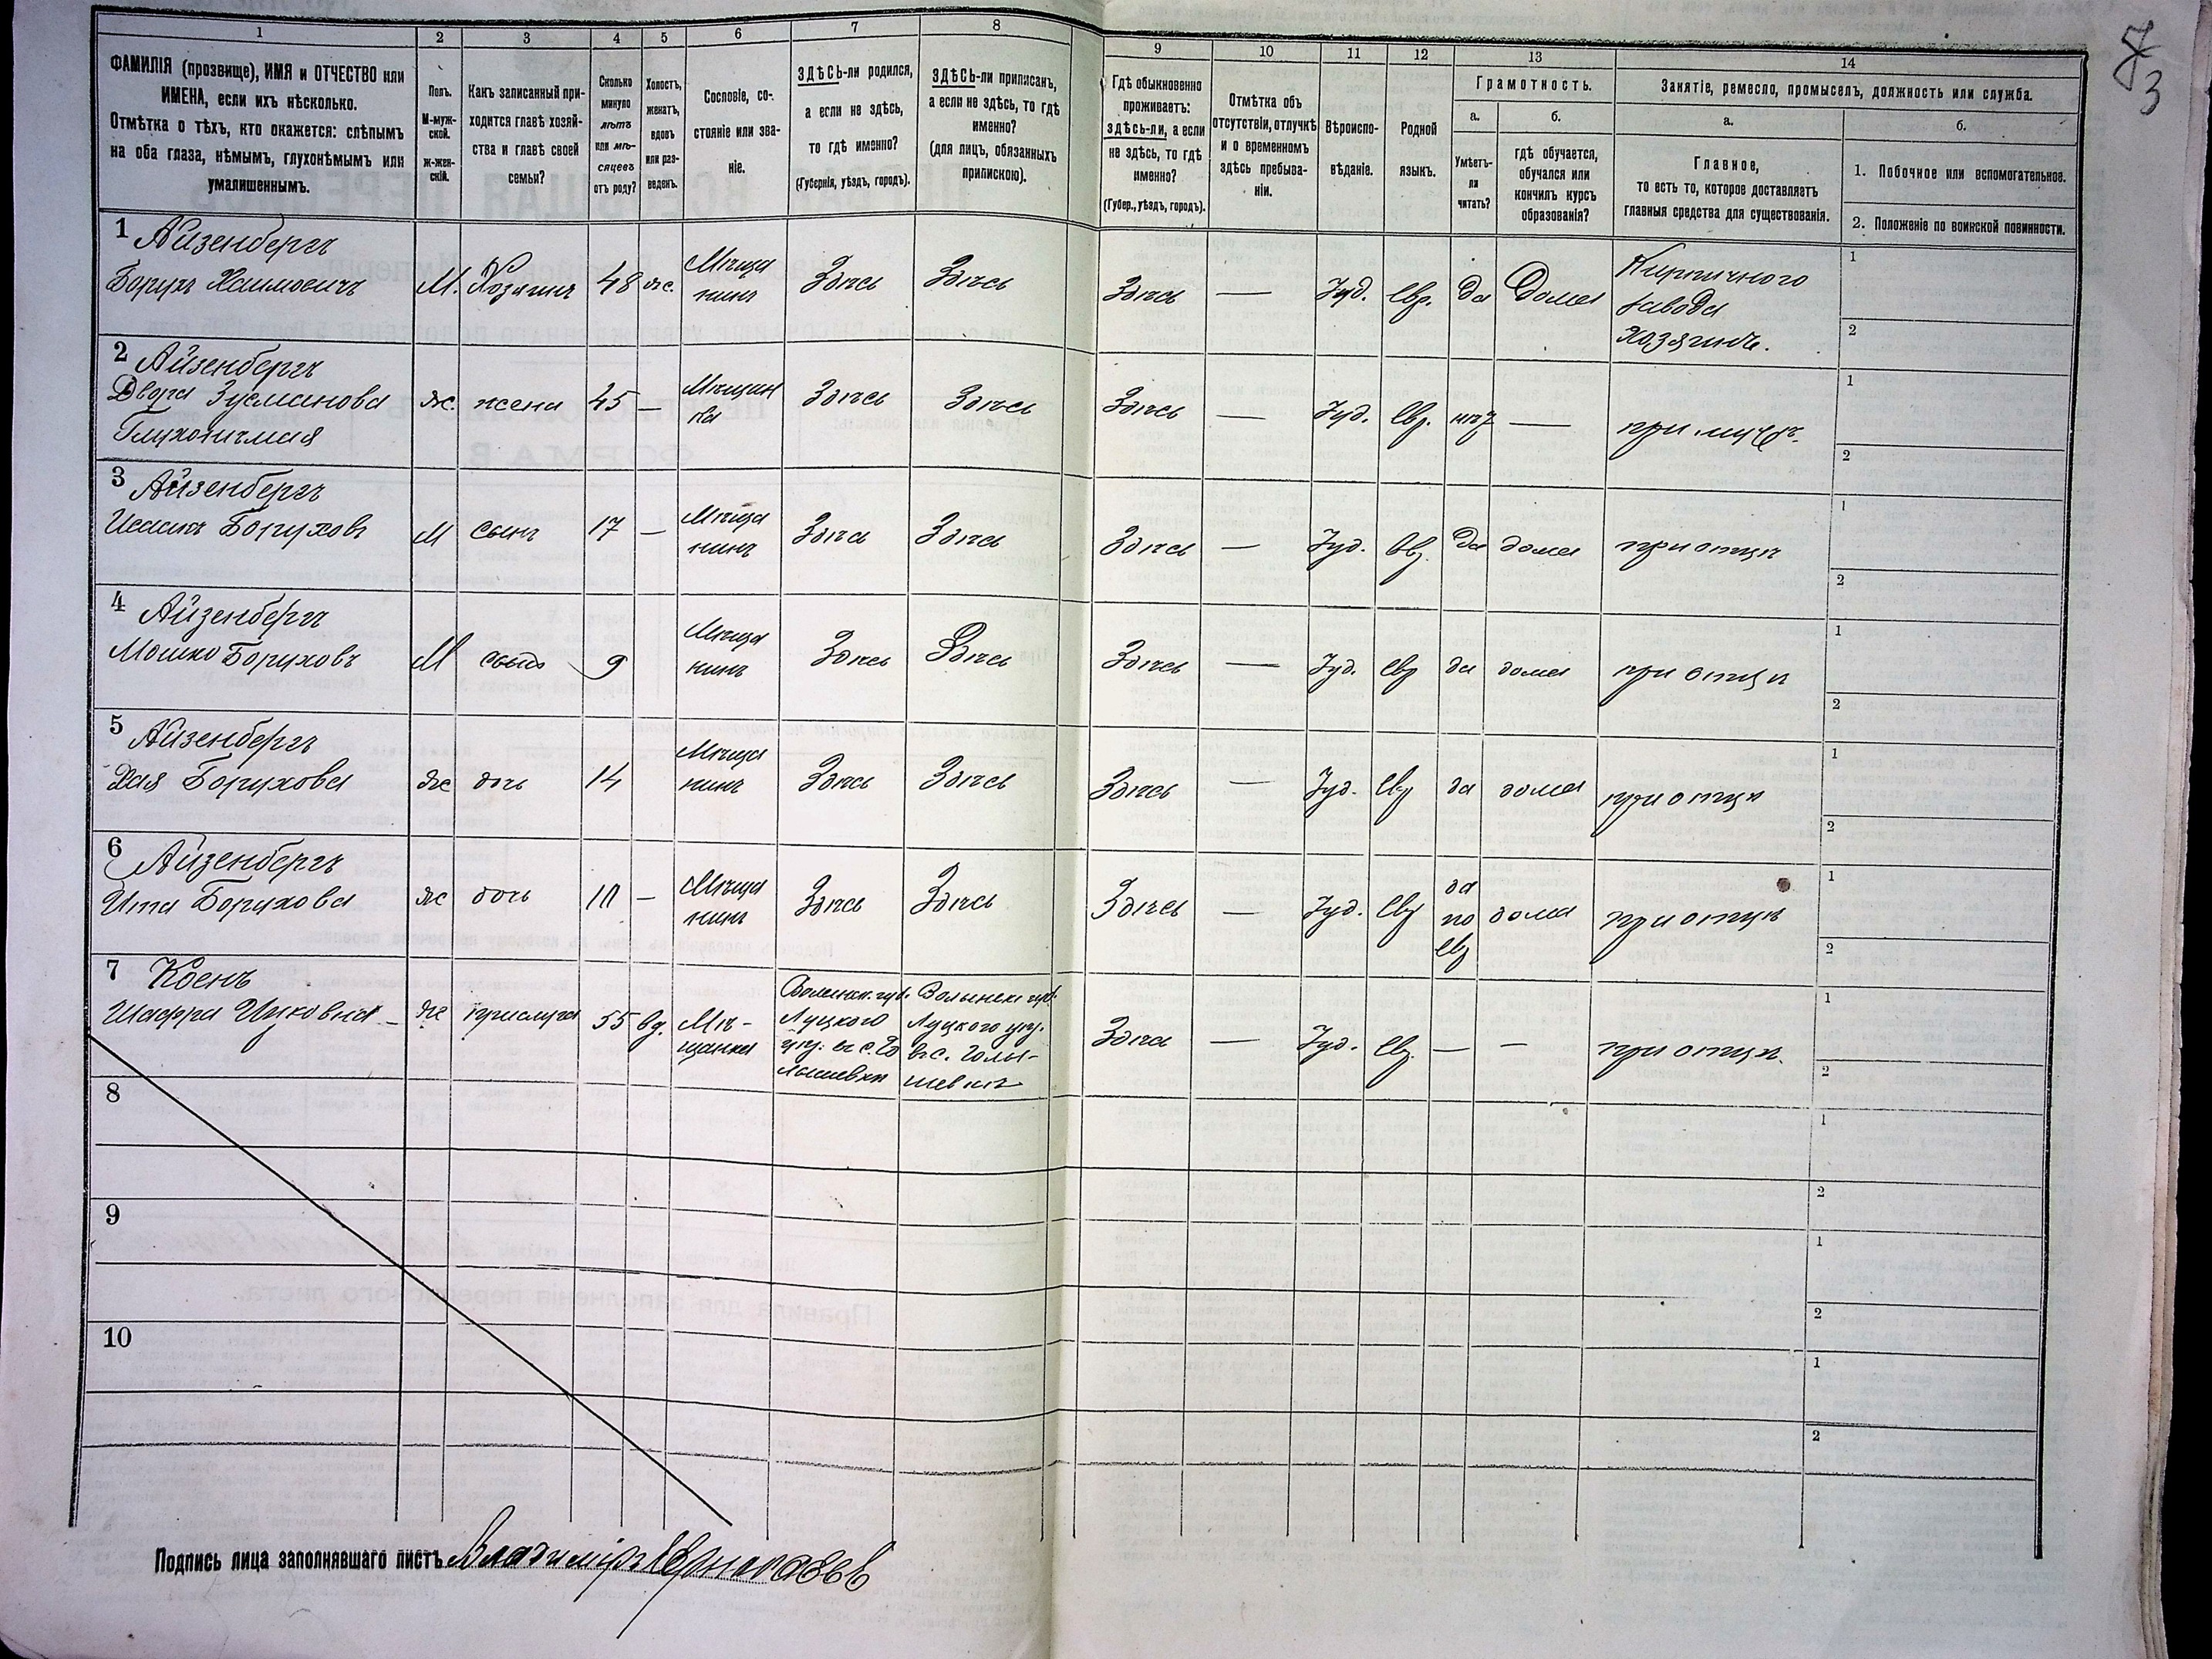 3
1 2 3 4 5 6 7 8 9 10 11 12 13 14
ФАМИЛІЯ (прозвище), ИМЯ и ОТЧЕСТВО или
ИМЕНА, если ихъ нѣсколько.
Отмѣтка о тѣхъ, кто окажется: слѣпымъ
на оба глаза, нѣмымъ, глухонѣмымъ или
умалишеннымъ.
Полъ.
М-муж-
ской.
ж-жен-
скій.
Какъ записанный при-
ходится главѣ хозяй-
ства и главѣ своей
семьи?
Сколько
минуло
лѣтъ
или мѣ-
сяцевъ
отъ роду?
Холостъ,
женатъ,
вдовъ
или раз-
веденъ.
Сословіе, со-
стояніе или зва-
ніе.
ЗДѢСЬ-ли родился,
а если не здѣсь,
то гдѣ именно?
(Губернія, уѣздъ, городъ).
ЗДѢСЬ-ли приписанъ,
а если не здѣсь, то гдѣ
именно?
(для лицъ, обязанныхъ
припискою).
Гдѣ обыкновенно
проживаетъ:
здѣсь-ли, а если
не здѣсь, то гдѣ
именно?
(Губер., уѣздъ, городъ).
Отмѣтка объ
отсутствіи, отлучкѣ
и о временномъ
здѣсь пребыва-
ніи.
Вѣроиспо-
вѣданіе.
Родной
языкъ.
Грамотность.
а.
Умѣетъ-
ли
читать?
б.
гдѣ обучается,
обучался или
кончилъ курсъ
образованія?
Занятіе, ремесло, промыселъ, должность или служба.
а.
Главное,
то есть то, которое доставляетъ
главныя средства для существованія.
б.
1. Побочное или вспомогательное.
2. Положеніе по воинской повинности.
1 Айзенбергъ
Борухъ Хаимовичъ М. Хозяинъ 48 ж. Мѣща
нинъ Здѣсь Здѣсь Здѣсь — Іуд. Евр. да Дома Кирпичного
завода
хозяинъ.
1
2
2 Айзенбергъ
Двора Зусманова ж. жена 45 — Мѣщан
ка Здѣсь Здѣсь Здѣсь — Іуд. Евр. нѣт — при мужѣ.
Глухонѣмая
1
2
3 Айзенбергъ
Исаакъ Боруховъ М сынъ 17 — Мѣща
нинъ Здѣсь Здѣсь Здѣсь — Іуд. Евр. да дома при отцѣ
1
2
4 Айзенбергъ
Мошко Боруховъ М сынъ 9 Мѣща
нинъ Здѣсь Здѣсь Здѣсь — Іуд. Евр да дома при отцѣ
1
2
5 Айзенбергъ
Хая Борухова ж дочь 14 Мѣща
нинъ Здѣсь Здѣсь Здѣсь — Іуд. Евр да дома при отцѣ
1
2
6 Айзенбергъ
Ита Борухова ж дочь — Мѣща
нинъ Здѣсь Здѣсь Здѣсь — Іуд. Евр да
по
евр дома при отцѣ
1
2
7 Коенъ
Шафра Ицковна ж прислуга 55 вд. Мѣ-
щанка
Волынск. губ.
Луцкого
уѣз. въ с. Го
лышевкѣ
Волынск. губ.
Луцкого уѣз.
въ с. Голы-
шевкѣ
Здѣсь — Іуд. Евр. — — при отцѣ.
1
2
8
1
2
9
1
2
10
1
2
Подпись лица заполнявшаго листъ Владиміръ